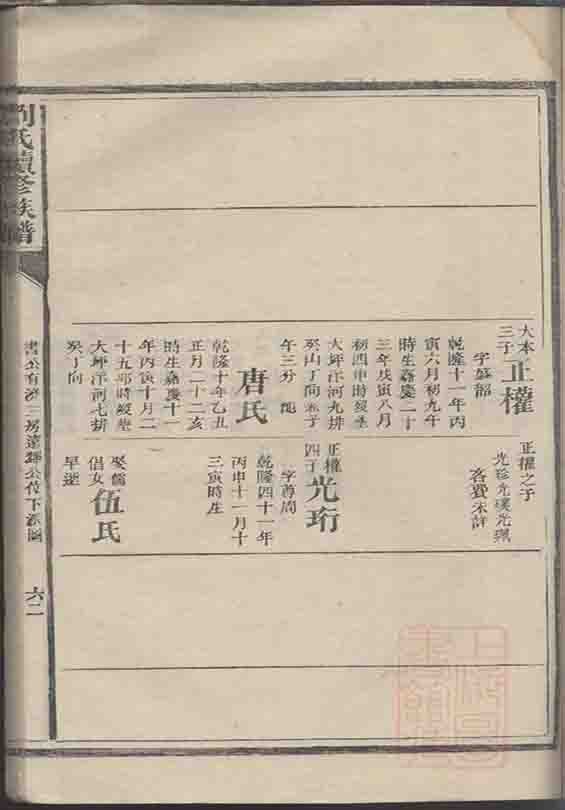 大本
三子
正權
字
乾隆十一年丙
寅六月初九午
時生嘉慶二十
三年戊寅八月
初四申時歿葬
大坪洋河九拼
癸山丁向兼子
午三分
唐氏
乾隆十年乙丑
正月二十二亥
時生嘉慶十一
年丙寅十月二
十五卯時歿葬
大坪洋河七拼
癸丁向
正權之子
光珍光璞光珮
各費未詳
正權
四子
光珩
字尊周
乾隆四十一年
丙申十一月十
三寅時生
娶儒
倡女
伍氏
早逝
劉氏續修族譜
六二